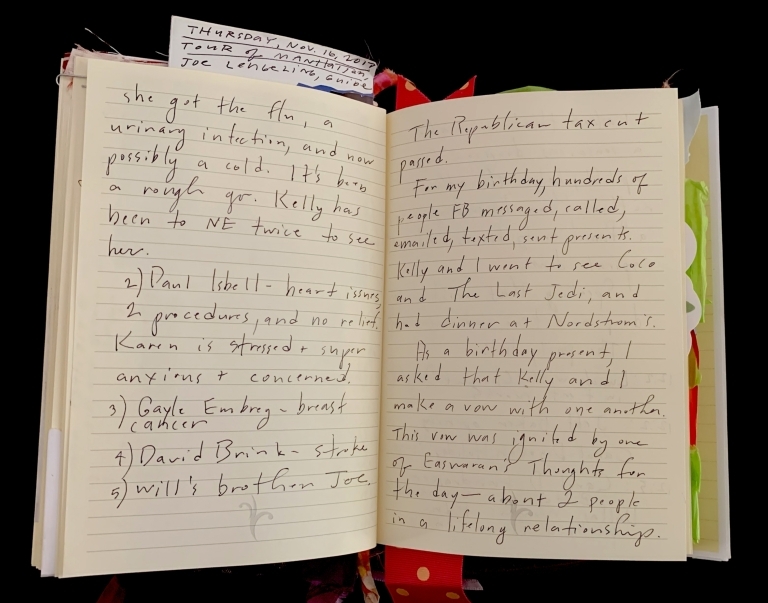 THURSDAY, NOV. 16, 2017
TOUR OF MANHATTAN,
JOE LENGELING, GUIDE
she got the flu, a
urinary infection, and now
possibly a cold. It's been
a rough go. Kelly has
been to NE twice to see
her.
2) Paul Isbell - heart issues,
2 procedures, and no relief.
Karen is stressed + super
anxious + concerned.
3) Gayle Embrey - breast
cancer
4) David Brink - stroke
5) Will's brother Joe.
The Republican tax cut
passed.
For my birthday, hundreds of
people FB messaged, called,
emailed, texted, sent presents.
Kelly and I went to see Coco
and The Last Jedi, and
had dinner at Nordstrom's.
As a birthday present, I
asked that Kelly and I
make a vow with one another.
This vow was ignited by one
of Easwaran's Thoughts for
the day - about 2 people
in a lifelong relationship.